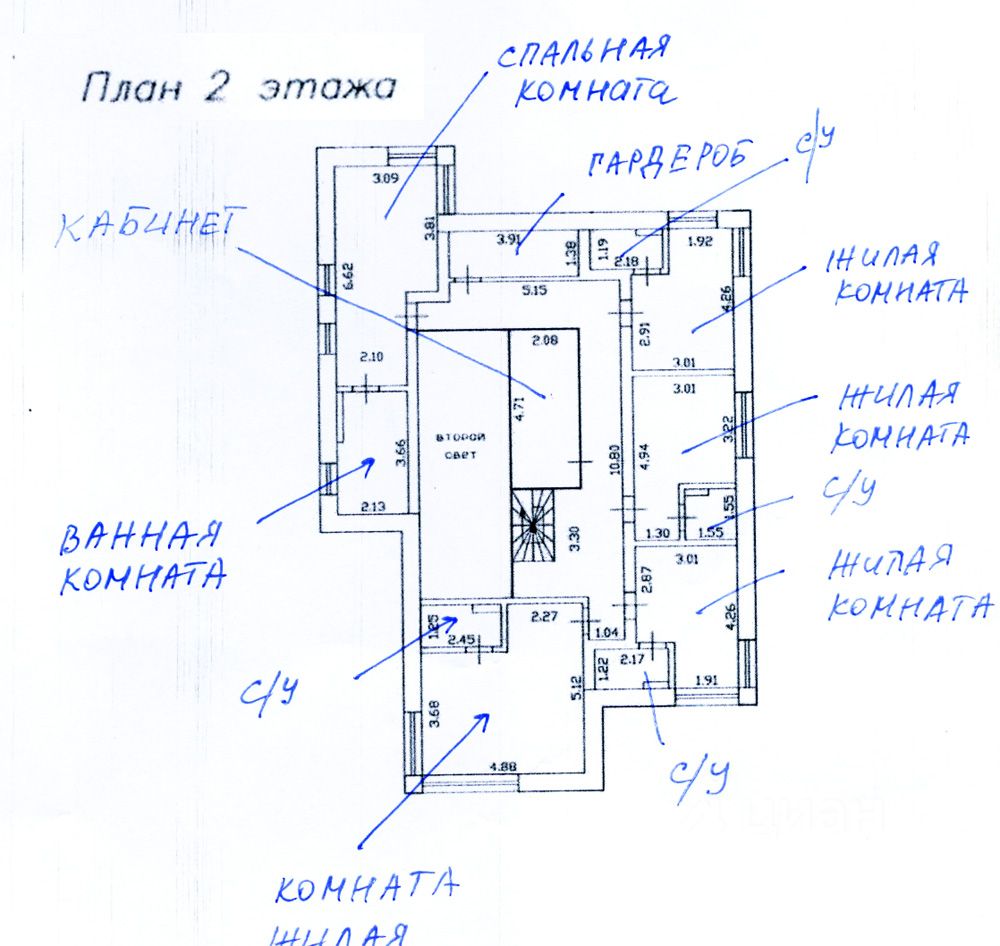 СПАЛЬНАЯ
КОМНАТА
План 2 этажа
ГАРДЕРОБ
С/У
3.09
КАБИНЕТ
3.81
3.91
1.38
1.19
2.18
1.92
ЖИЛАЯ
КОМНАТА
6.62
5.15
4.26
2.91
2.08
2.10
3.01
3.01
ЖИЛАЯ
КОМНАТА
4.71
3.22
ВТОРОЙ
СВЕТ
3.66
10.80
4.94
С/У
2.13
1.55
1.30
1.55
3.30
ВАННАЯ
КОМНАТА
3.01
ЖИЛАЯ
КОМНАТА
2.87
4.26
1.25
2.45
2.27
1.04
1.22
2.17
1.91
С/У
5.12
3.68
4.88
С/У
циан
КОМНАТА
ЖИЛАЯ